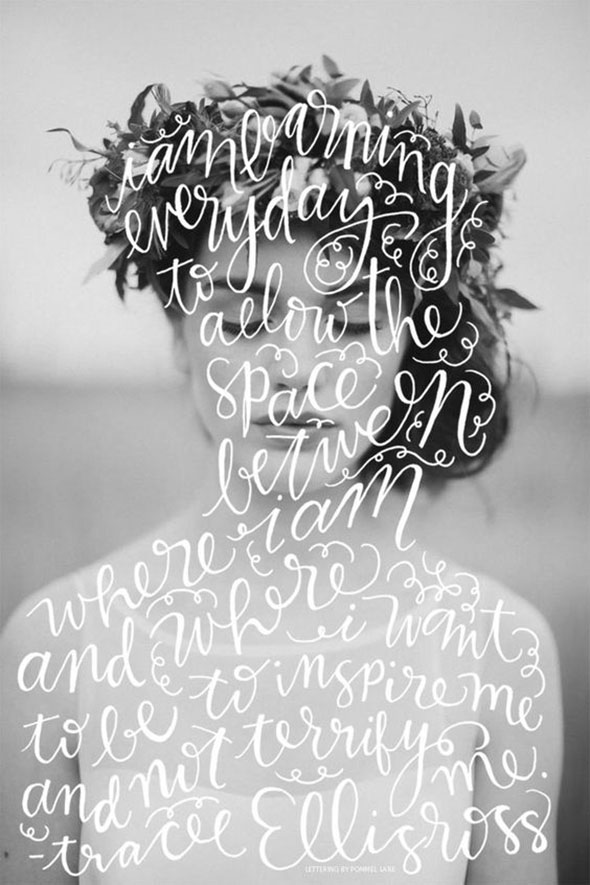 i am learning
everyday
to allow the
space
between
where i am
and where i want
to be to inspire me
and not terrify me.
-tracee Ellis ross
LETTERING BY POMMEL LANE